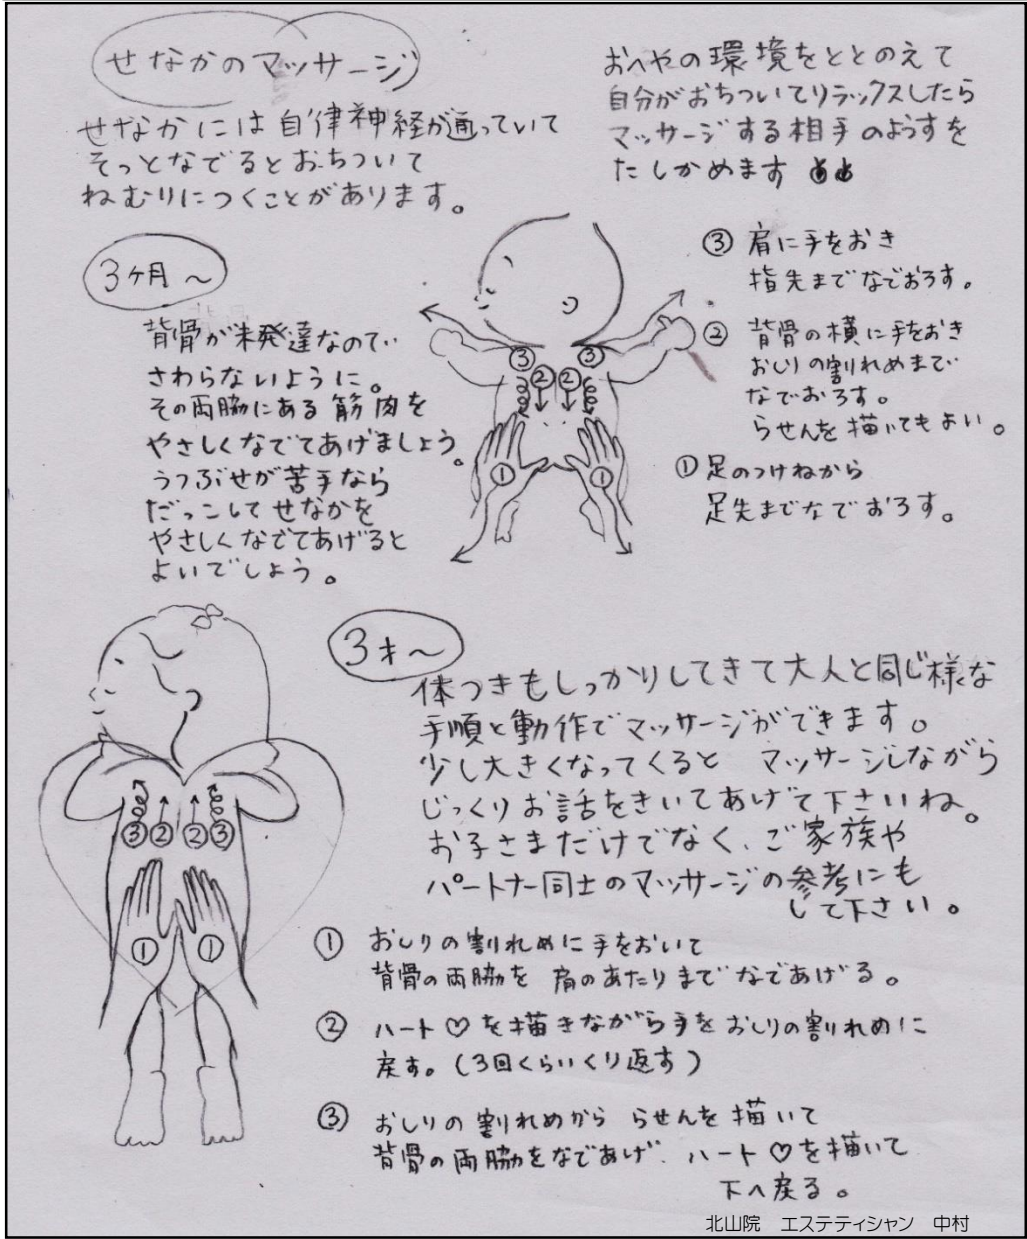 せなかのマッサージ
せなかには自律神経が通っていて
そっとなでるとおちついて
ねむりにつくことがあります。
おへやの環境をととのえて
自分がおちついてリラックスしたら
マッサージする相手のようすを
たしかめます
3ヶ月～
背骨が未発達なので
さわらないように。
その両脇にある筋肉を
やさしくなでてあげましょう。
うつぶせが苦手なら
だっこしてせなかを
やさしくなでてあげると
よいでしょう。
③ ③
② ②
① ①
③ 肩に手をおき
指先までなでおろす。
② 背骨の横に手をおき
おしりの割れめまで
なでおろす。
らせんを描いてもよい。
① 足のつけねから
足先までなでおろす。
3才～
体つきもしっかりしてきて大人と同じ様な
手順と動作でマッサージができます。
少し大きくなってくると マッサージしながら
じっくりお話をきいてあげて下さいね。
お子さまだけでなく、ご家族や
パートナー同士のマッサージの参考にも
して下さい。
③ ② ② ③
① ①
① おしりの割れめに手をおいて
背骨の両脇を 肩のあたりまでなであげる。
② ハート♡を描きながら手をおしりの割れめに
戻す。(3回くらいくり返す)
③ おしりの割れめから らせんを描いて
背骨の両脇をなであげ、ハート♡を描いて
下へ戻る。
北山院 エステティシャン 中村